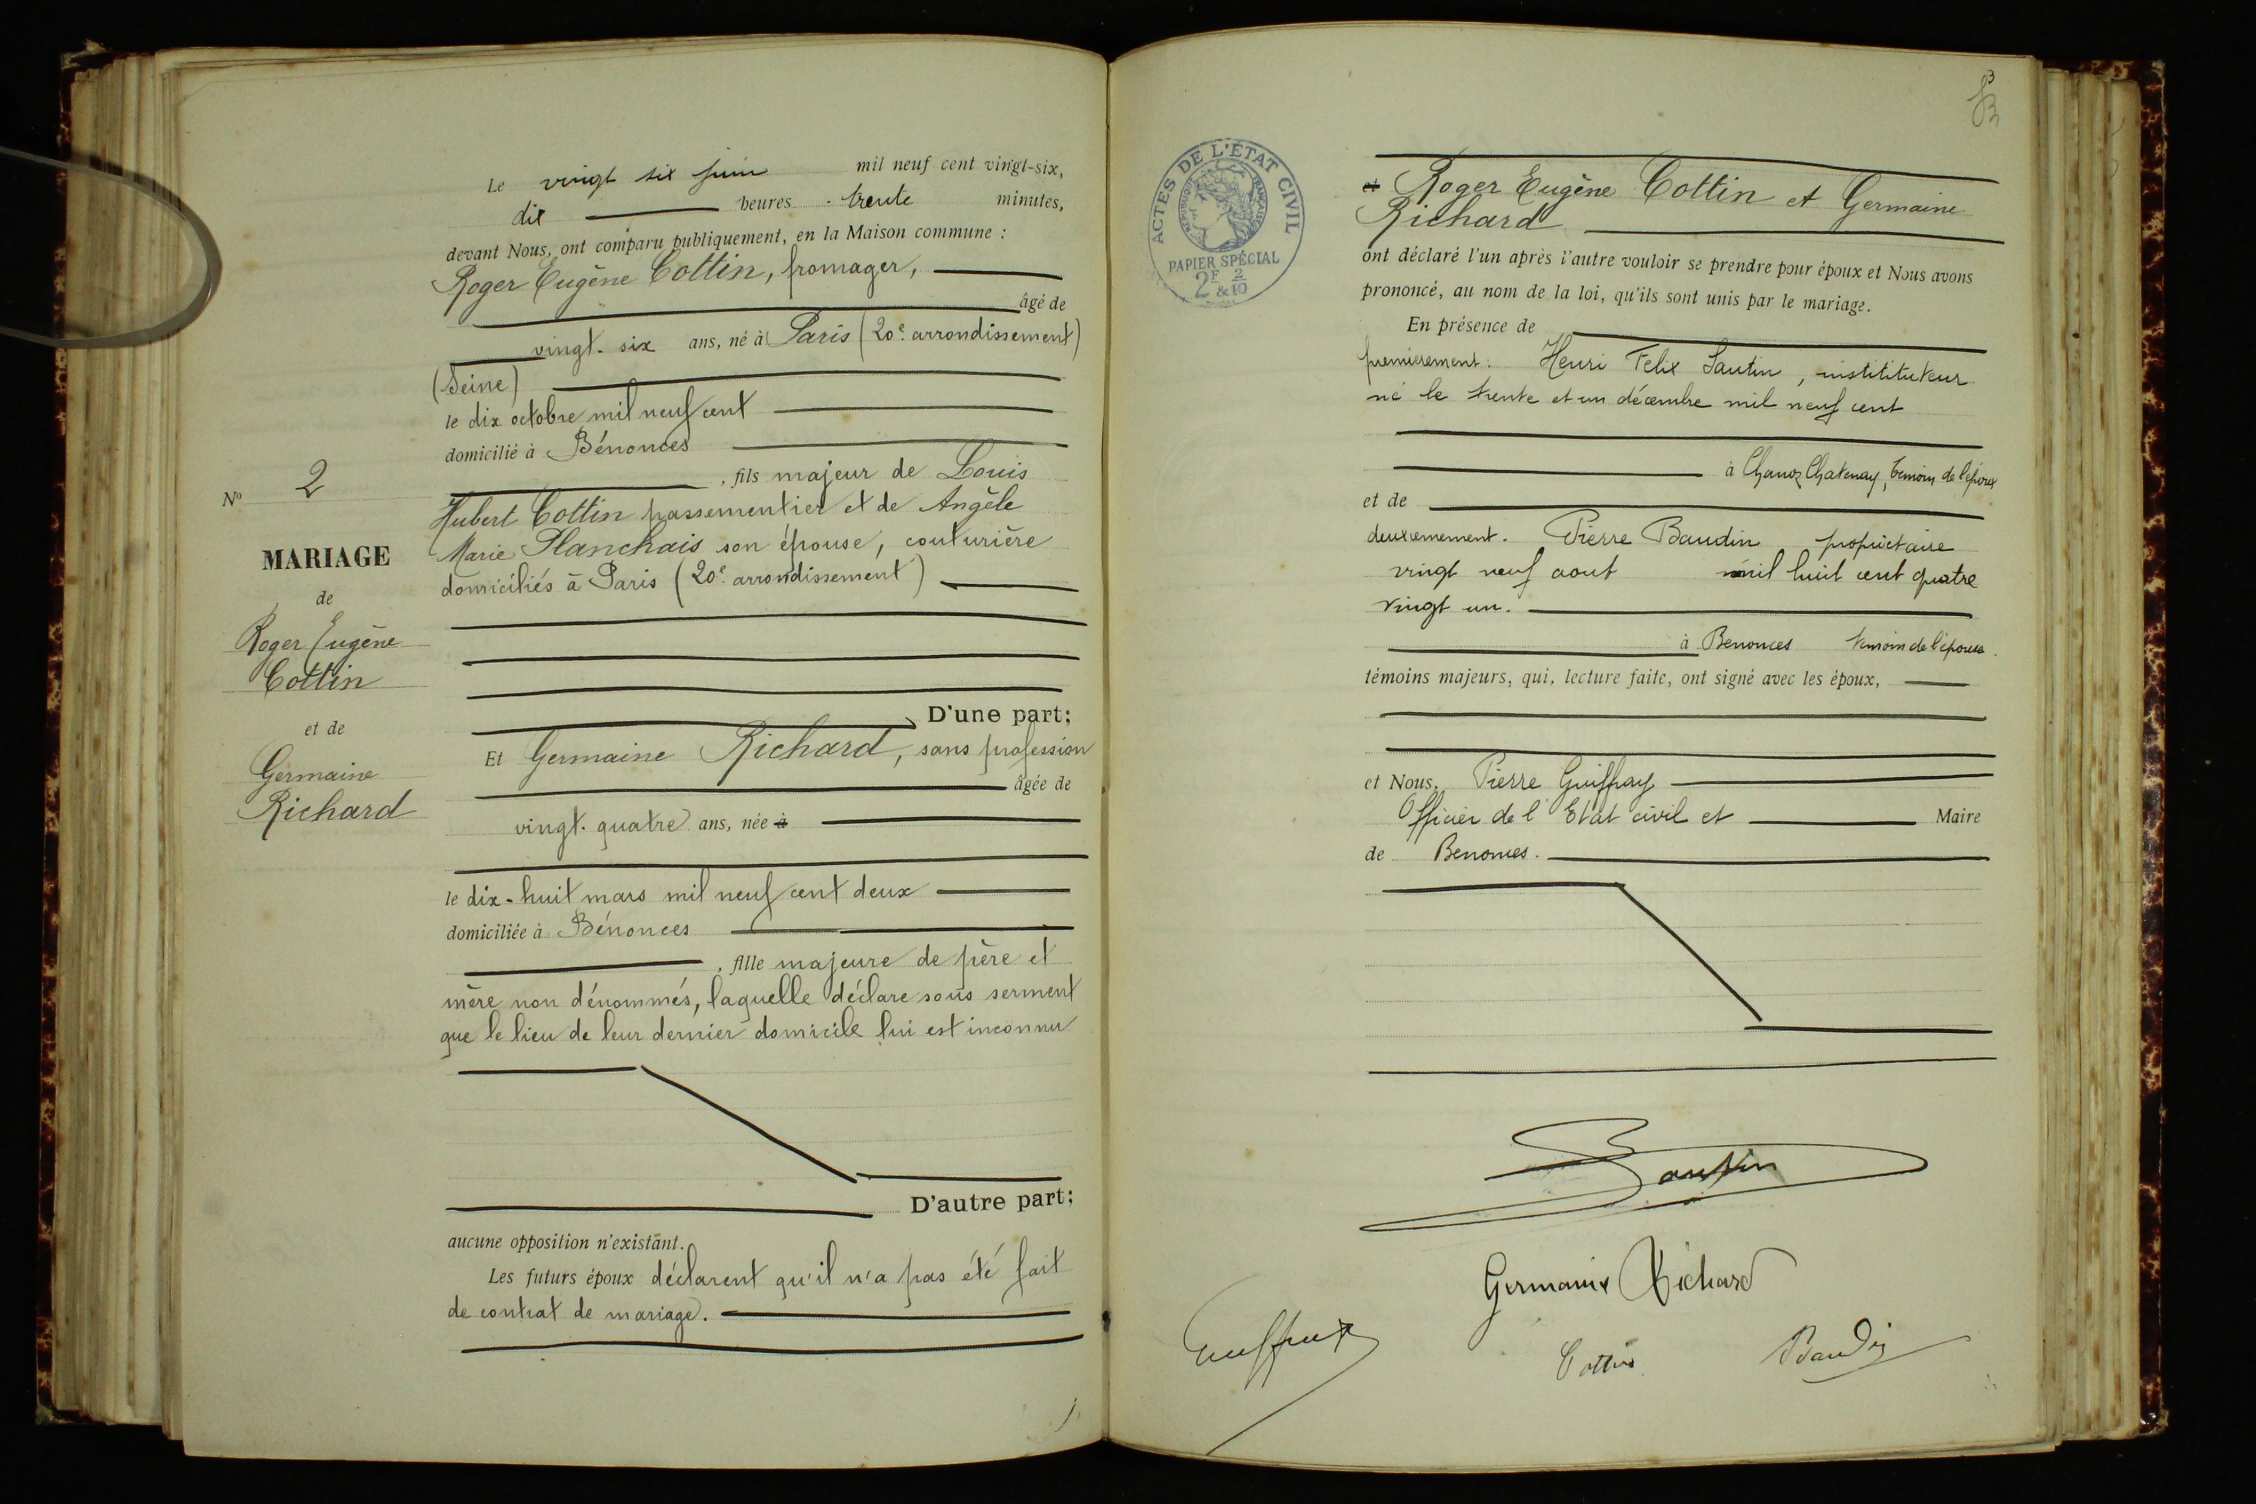 Le vingt six juin mil neuf cent vingt-six,
dix heures trente minutes,
devant Nous, ont comparu publiquement, en la Maison commune :
Roger Eugène Cottin, fromager,
âgé de
vingt-six ans, né à Paris (20e arrondissement)
(Seine)
le dix octobre mil neuf cent
domicilié à Bénonces
, fils majeur de Louis
Hubert Cottin passementier et de Angèle
Marie Planchais son épouse, couturière
domiciliés à Paris (20e arrondissement)
D'une part;
Et Germaine Richard, sans profession
âgée de
vingt-quatre ans, née à
le dix-huit mars mil neuf cent deux
domiciliée à Bénonces
, fille majeure de père et
mère non dénommés, laquelle déclare sous serment
que le lieu de leur dernier domicile lui est inconnu
D'autre part;
aucune opposition n'existant.
Les futurs époux déclarent qu'il n'a pas été fait
de contrat de mariage.
No 2
MARIAGE
de
Roger Eugène
Cottin
et de
Germaine
Richard
ACTES DE L'ÉTAT CIVIL
RÉPUBLIQUE FRANÇAISE
PAPIER SPÉCIAL
2F & 2/10
3
et Roger Eugène Cottin et Germaine
Richard
ont déclaré l'un après l'autre vouloir se prendre pour époux et Nous avons
prononcé, au nom de la loi, qu'ils sont unis par le mariage.
En présence de
premièrement. Henri Felix Sautin, instititukeur
né le trente et un décembre mil neuf cent
à Chanoz Chatenay, témoin de l'époux
et de
deuxièmement. Pierre Baudin propriétaire
vingt neuf aout mil huit cent quatre
vingt un.
à Benonces témoin de l'épouse.
témoins majeurs, qui, lecture faite, ont signé avec les époux,
et Nous, Pierre Guiffray
Officier de l'Etat civil et Maire
de Benonces.
Sautin
Germaine Richard
Guiffray
Cottin
Baudin